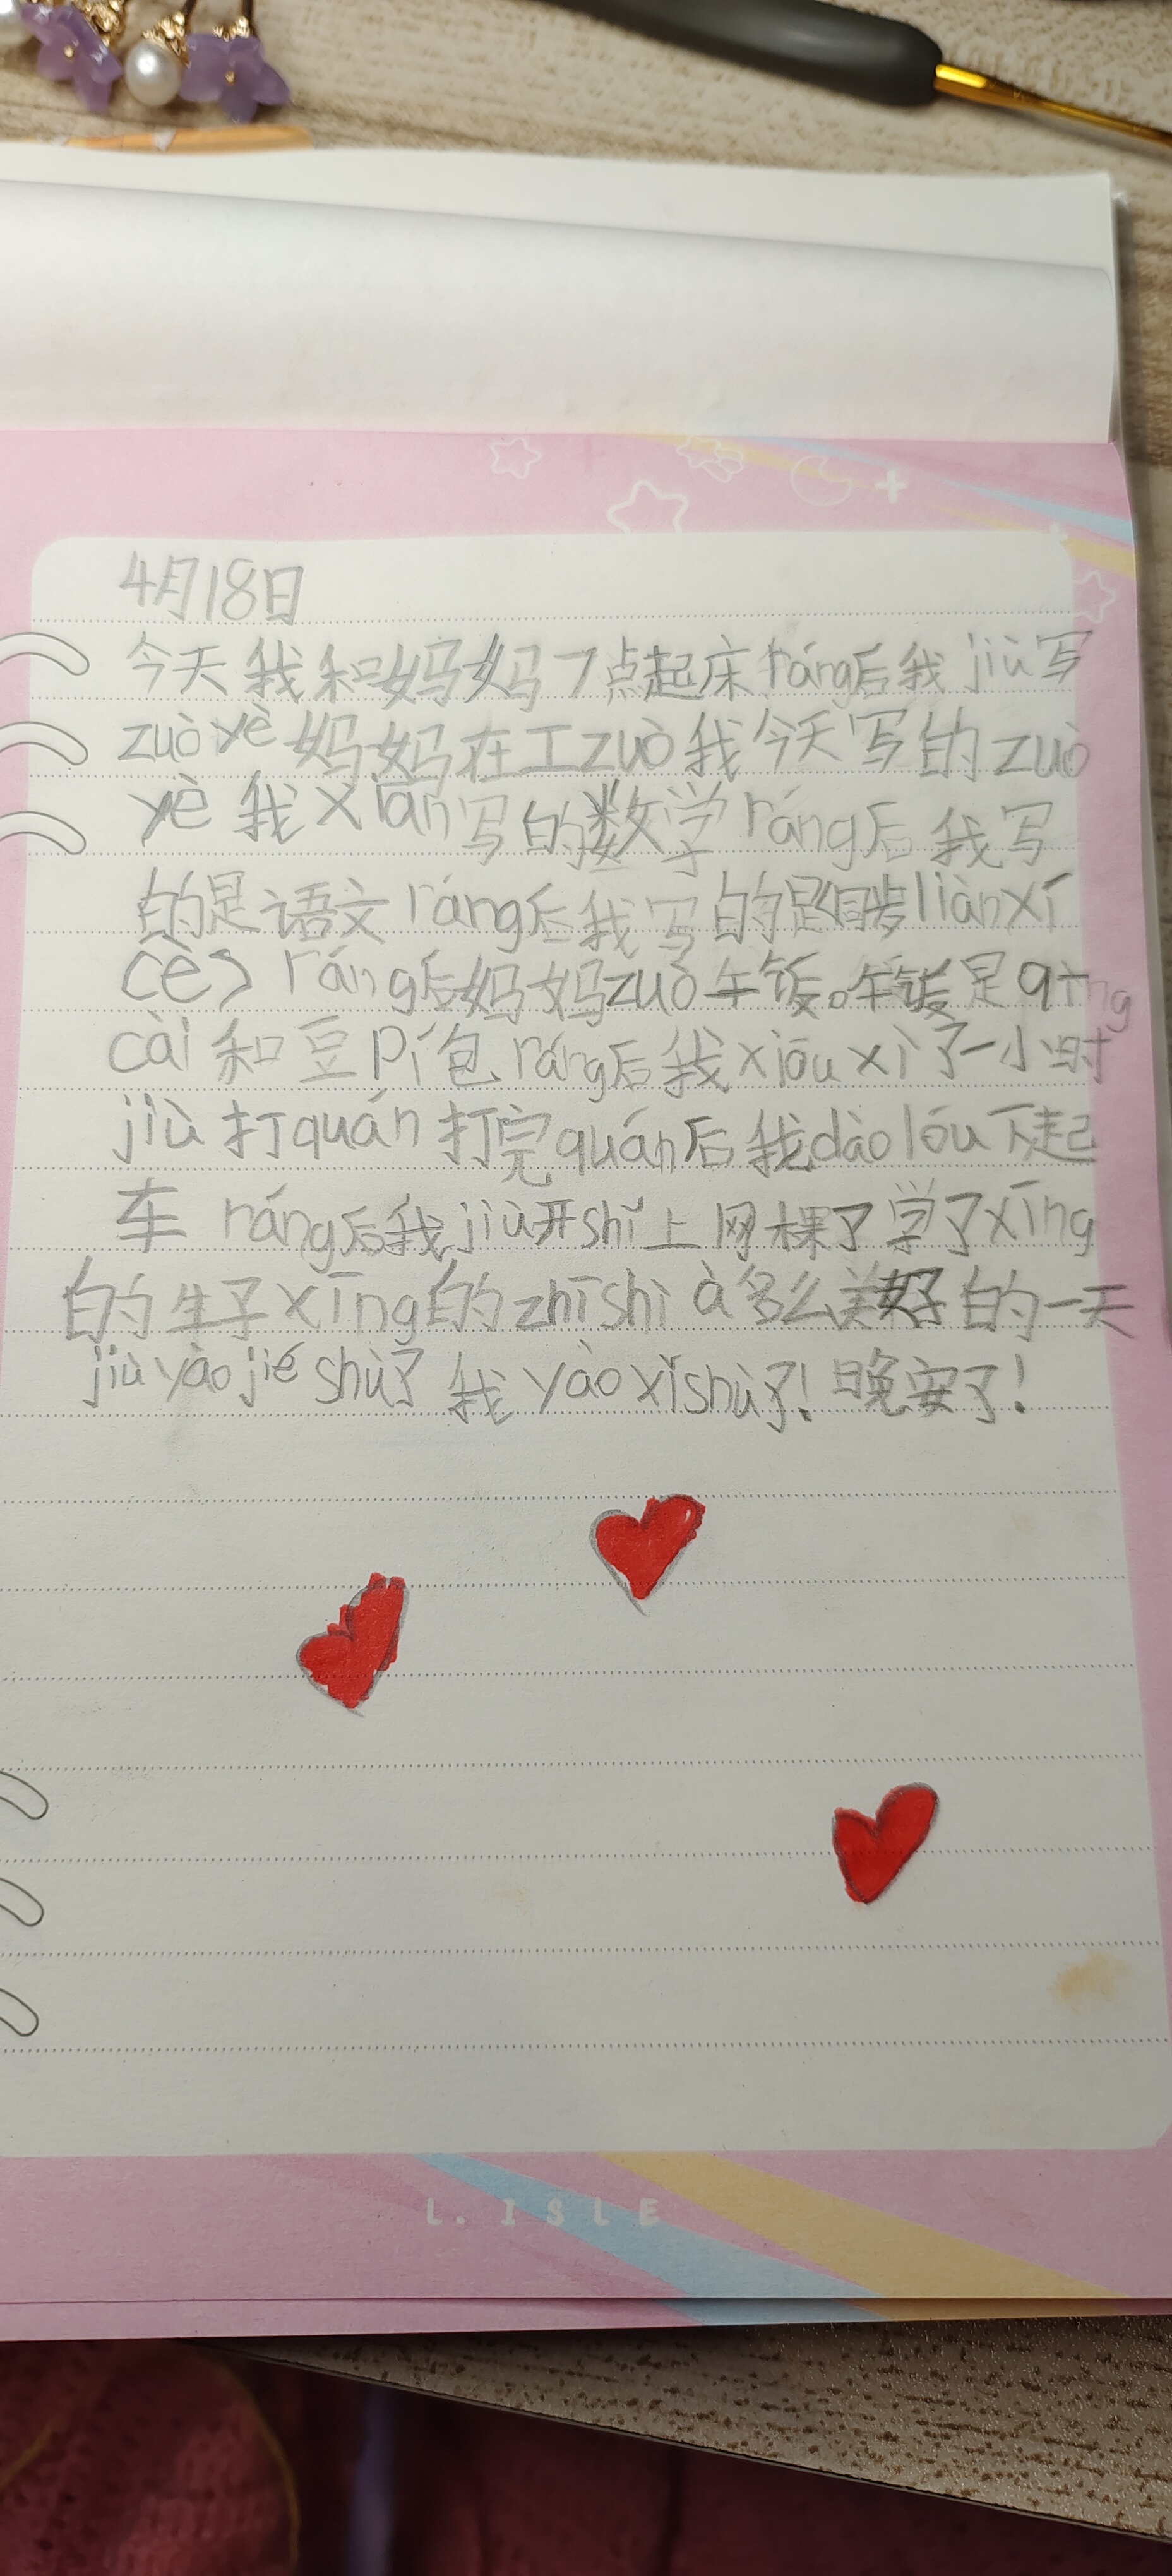 4月18日
今天我和妈妈7点起床ráng后我jiù写
zuòyè妈妈在工zuò我今天写的zuò
yè我xiān写的数学ráng后我写
的是语文ráng后我写的是liànxí
cès ráng后妈妈zuò午饭。午饭是qīng
cài和豆Pí包ráng后我xiōuxì了一小时
jiù打quán打完quán后我dào lóu下起
车ráng后我jiù开shǐ上网棵了学了xīng
的生子xīng的zhīshì à多么美好的一天
jiù yào jié shù了我yào xǐshù了！晚安了！
L. ISLE